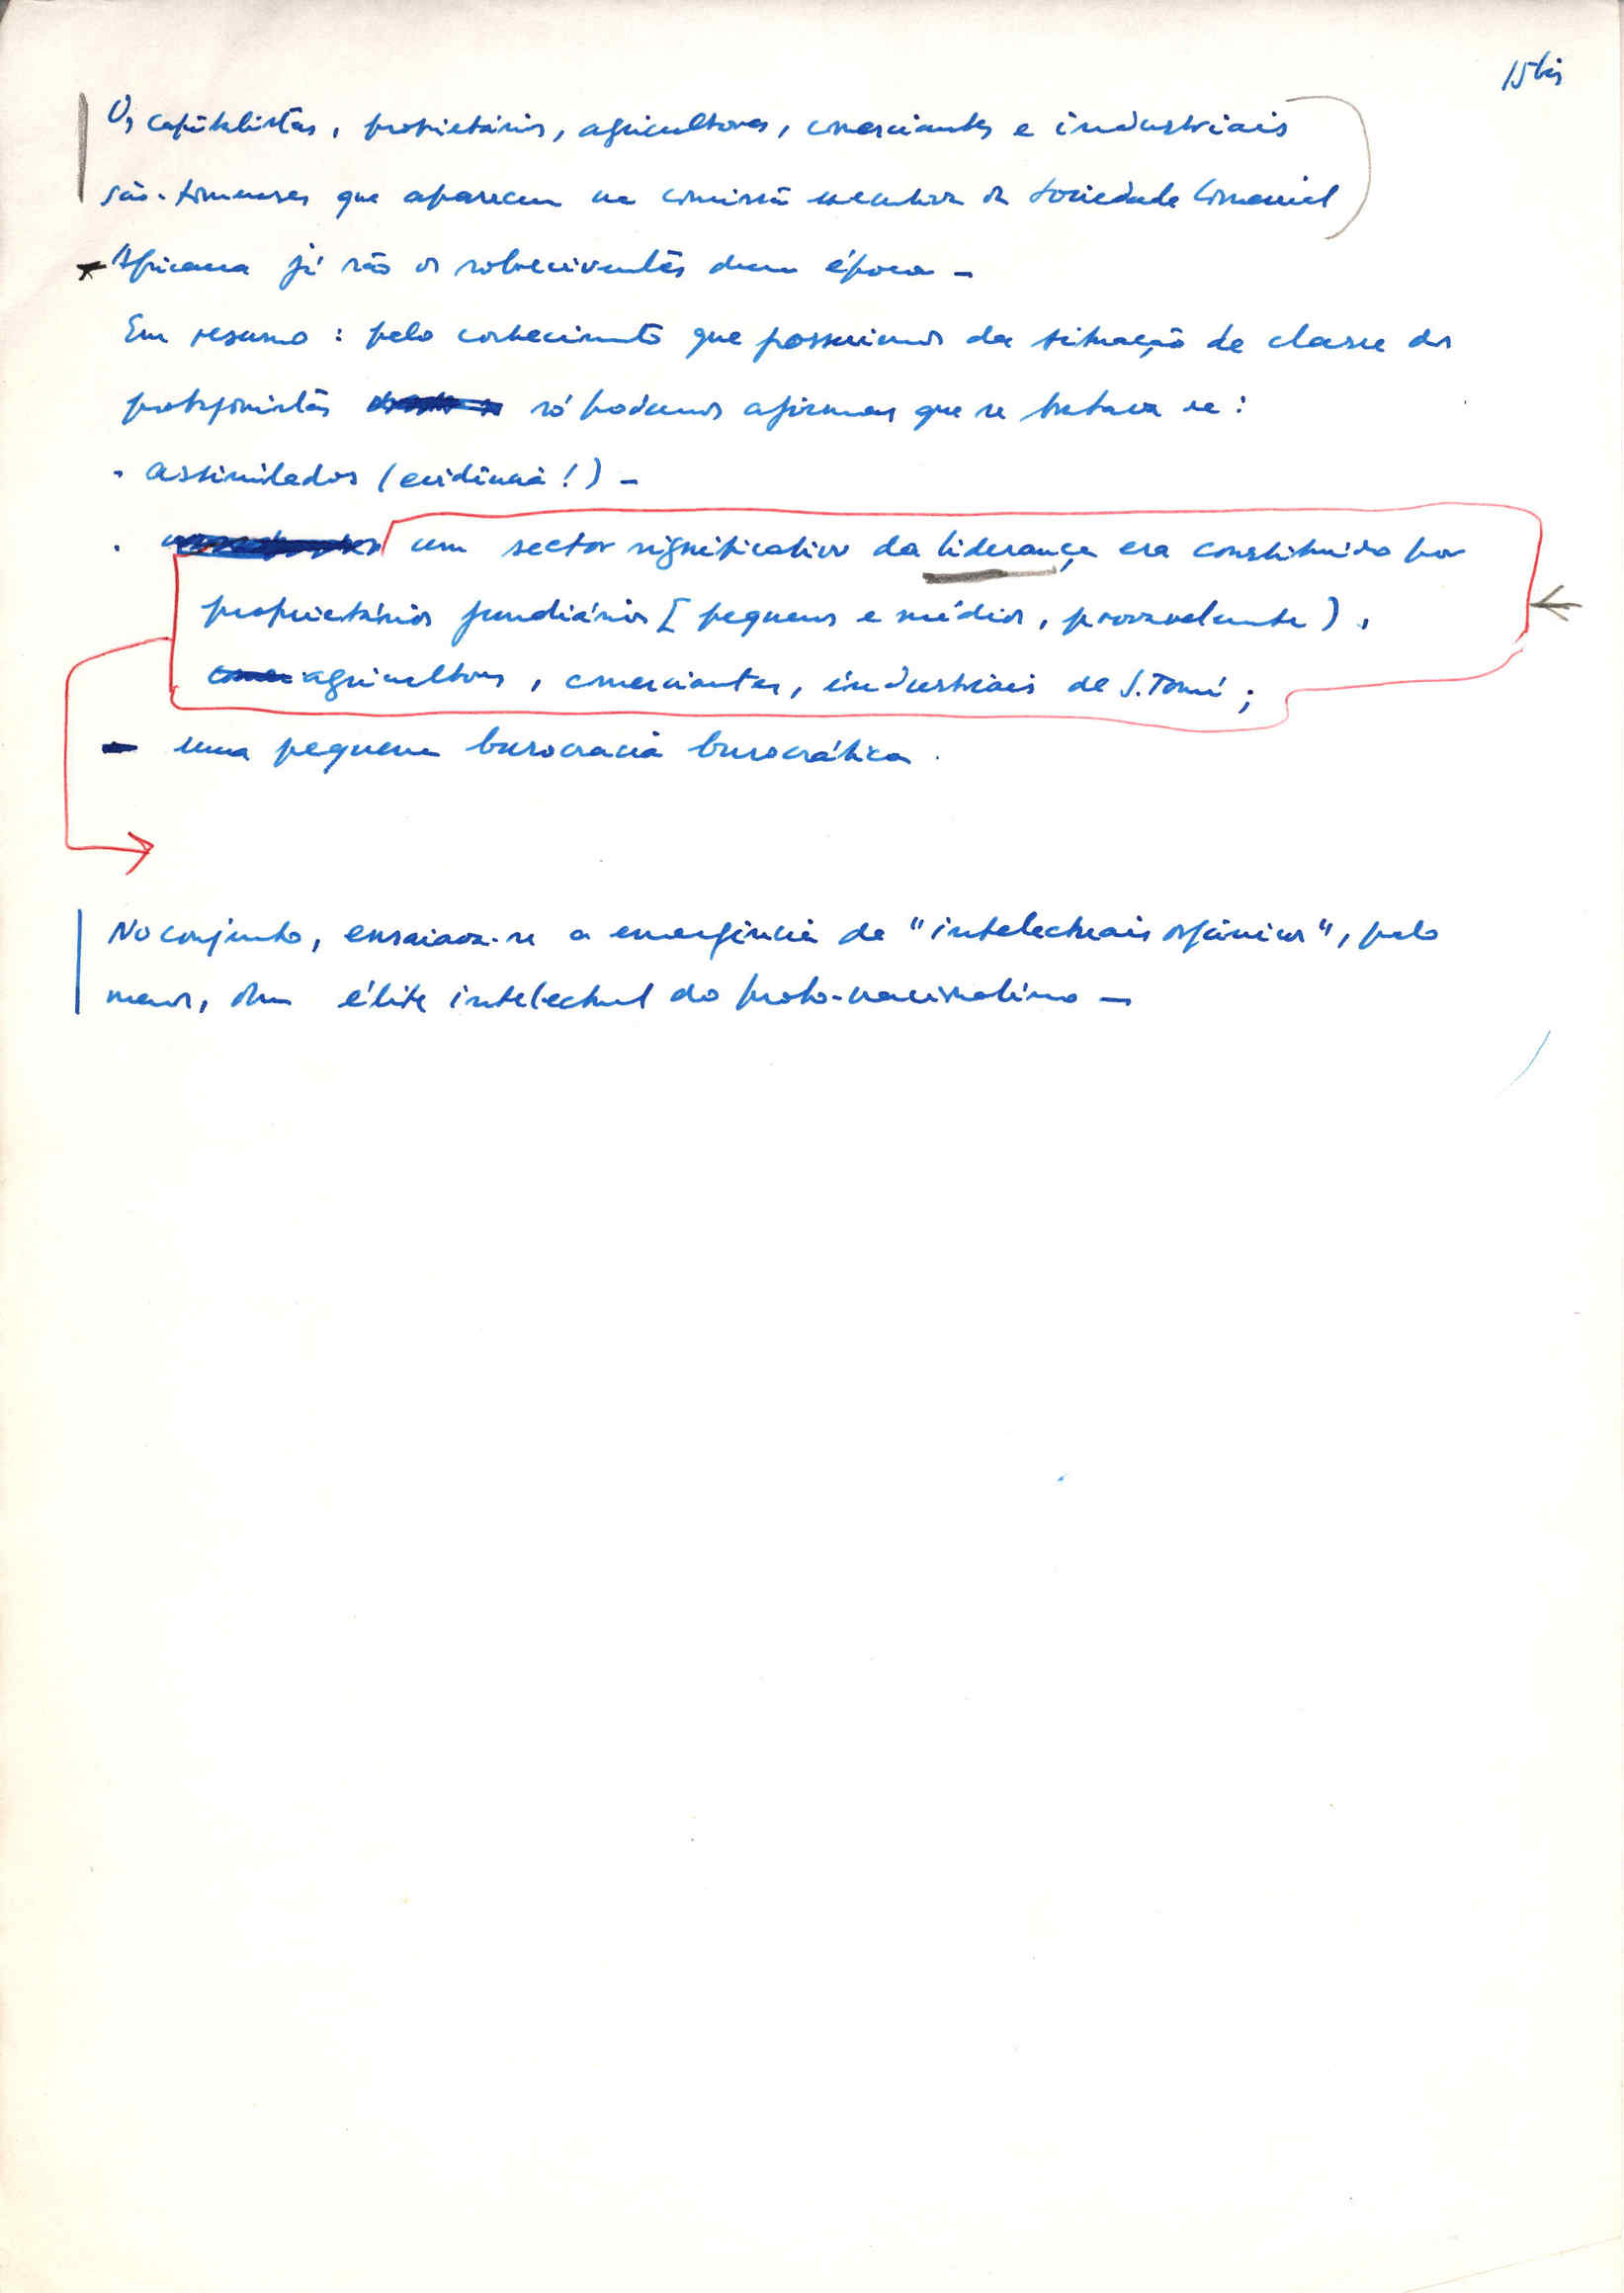 15bis
Os capitalistas, proprietários, agricultores, comerciantes e industriais
são-tomenses que aparecem na comissão executiva da Sociedade Comercial
Africana já são os sobreviventes duma época -
Em resumo : pelo conhecimento que possuimos da situação de classe dos
protagonistas só podemos afirmar que se tratava de :
. assimilados (evidência !) -
. um sector significativo da liderança era constituido por
proprietários fundiários [ pequenos e médios, provavelmente ) ,
agricultores , comerciantes, industriais de S. Tomé ;
- uma pequena burocracia burocrática .
No conjunto, ensaiava-se a emergência de "intelectuais orgânicos", pelo
menos, duma élite intelectual do proto-nacionalismo -